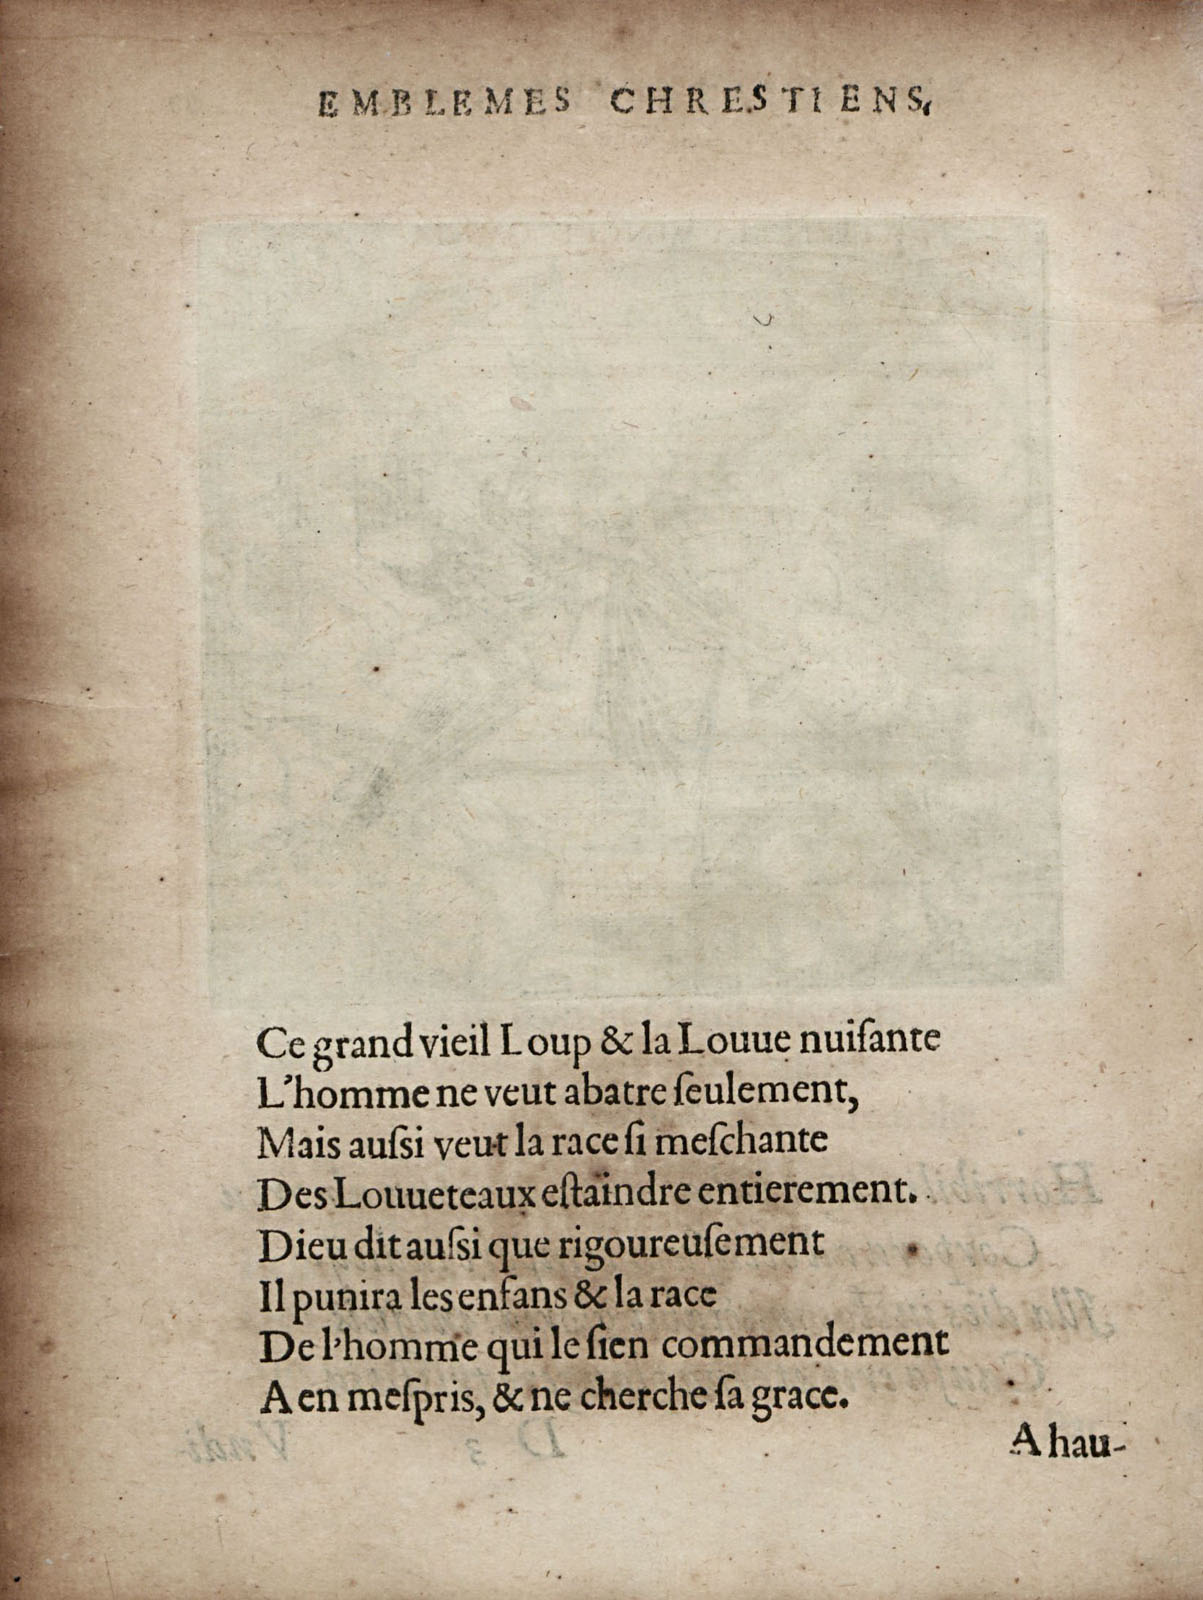 EMBLEMES CHRESTIENS,
Ce grand vieil Loup & la Louue nuiſante
L'homme ne veut abatre ſeulement,
Mais auſsi veut la race ſi meſchante
Des Louueteaux eſtaindre entierement.
Dieu dit auſsi que rigoureuſement
Il punira les enfans & la race
De l'homme qui le ſien commandement
A en meſpris, & ne cherche ſa grace.
A hau-